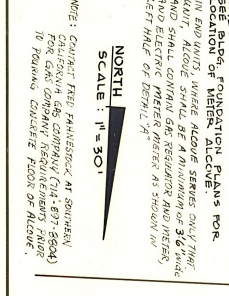 SEE BLDG. FOUNDATION PLANS FOR
LOCATION OF METER ALCOVE.
IN END UNITS WHERE ALCOVE SERVES ONLY THAT
UNIT, ALCOVE SHALL BE A MINIMUM OF 3'6" WIDE
AND SHALL CONTAIN GAS REGULATOR AND METER,
AND ELECTRIC METER METER AS SHOWN IN
LEFT HALF OF DETAIL "A"
NORTH
SCALE: 1"=30'
NOTE: CONTACT FRED FAHNESTOCK AT SOUTHERN
CALIFORNIA GAS COMPANY (714-897-8804)
FOR GAS COMPANY REQUIREMENTS PRIOR
TO POURING CONCRETE FLOOR OF ALCOVE.